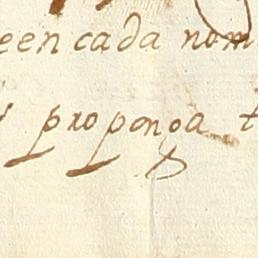 een cada nom
proponga t